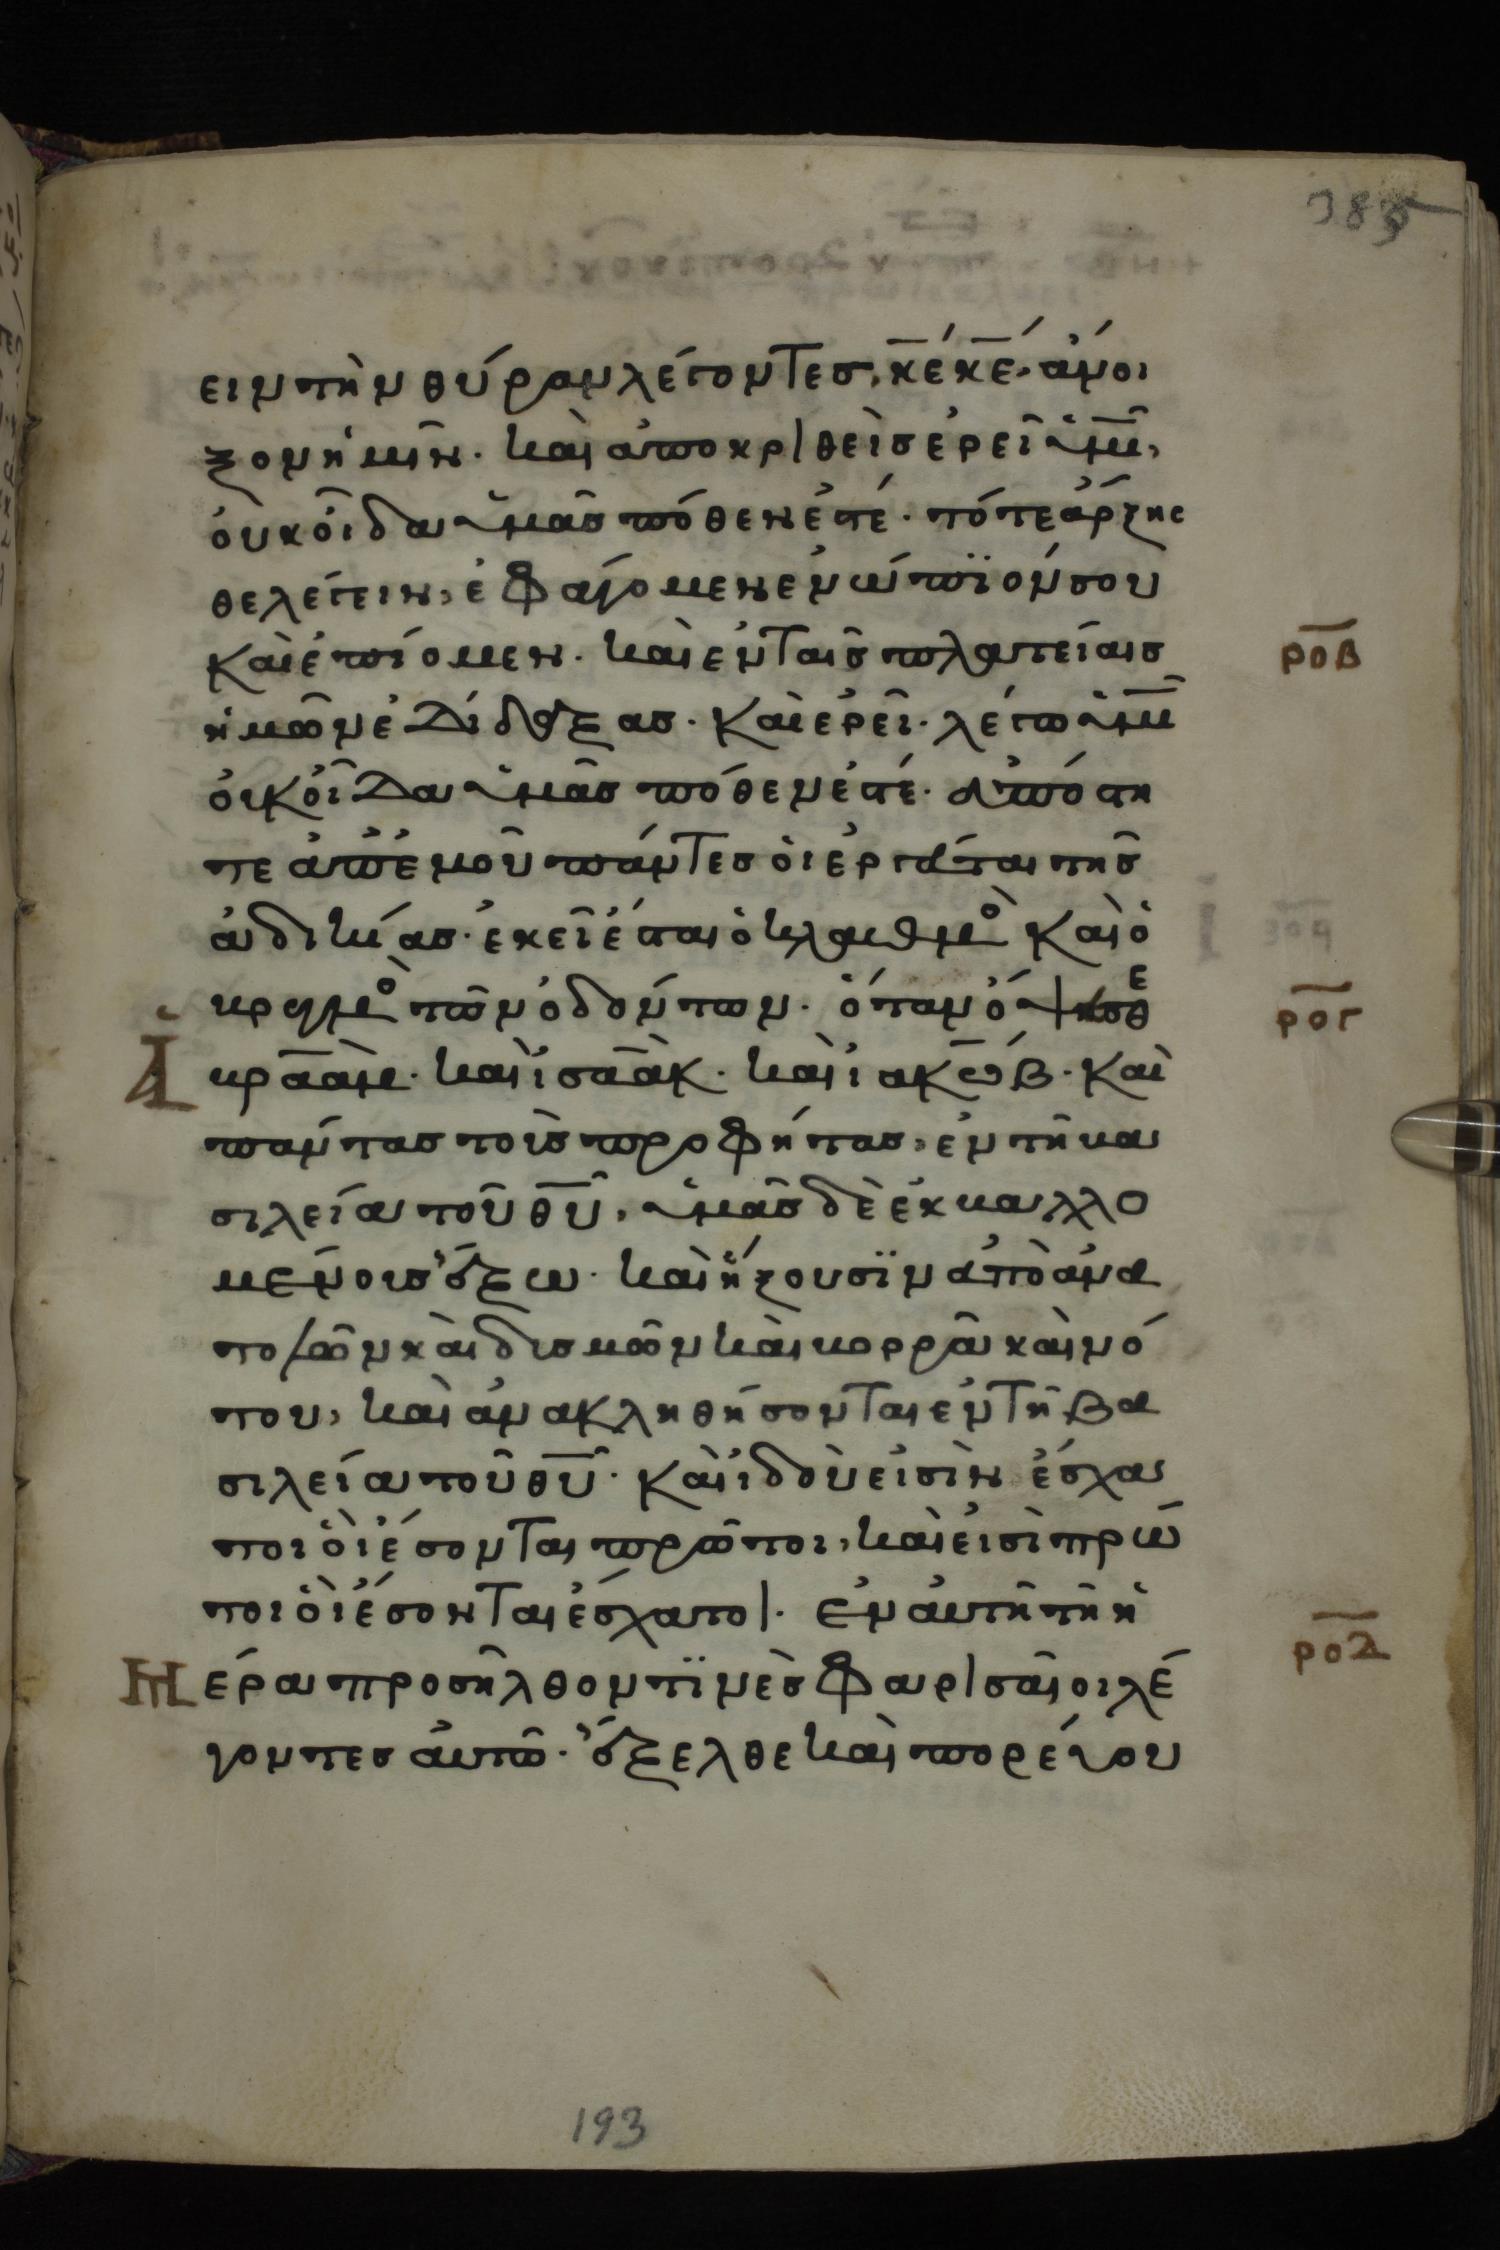 385
ειν τὴν θύραν λέγοντες, κ̅ε̅ κ̅ε̅· ἄνοι
ξον ἡμῖν· καὶ ἀποκριθεὶς ἐρεῖ ὑμῖ̅,
οὐκ οἶδα ὑμᾶς πόθεν ἐστέ· τότε ἄρξης
θε λέγειν, ἐφάγομεν ἐνώπϊόν σου
καὶ ἐπίομεν· καὶ ἐν ταῖς πλατείαις
ρ̅ο̅β̅
ἡμῶν ἐδίδαξας· καὶ ἐρεῖ· λέγω ὑμῖ̅
οὐκ οἶδα ὑμᾶς πόθεν ἐστέ· ἀπόστη
τε ἀπ' ἐμοῦ πάντες οἱ ἐργάται τῆς
ἀδικίας· ἐκεῖ ἔσται ὁ κλαυθμὸ καὶ ὁ
βρυγμὸ τῶν ὀδόντων· ὅταν ὄψησθε
ρ̅ο̅γ̅
Ἀβραὰμ· καὶ ἰσαὰκ· καὶ ἰακώβ· καὶ
πάντας τοὺς προφήτας, ἐν τῆ βα
σιλεία τοῦ θ̅υ̅, ὑμᾶς δὲ ἐκβαλλο
μένους ἔξω· καὶ ἥξουσϊν ἀπὸ ἀνα
τολῶν καὶ δυσμῶν καὶ βορρᾶ καὶ νό
του, καὶ ἀνακληθήσονται ἐν τῆ βα
σιλεία τοῦ θ̅υ̅· καὶ ἰδοὺ εἰσὶν ἔσχα
τοι οἳ ἔσονται πρῶτοι, καὶ εἰσὶ πρώ
τοι οἳ ἔσονται ἔσχατοι· ἐν αὐτῆ τῆ ἡ
ρ̅ο̅δ̅
Μέρα προσῆλθον τϊνὲς φαρισαῖοι λέ
γοντες αὐτῶ· ἔξελθε καὶ πορεύου
193